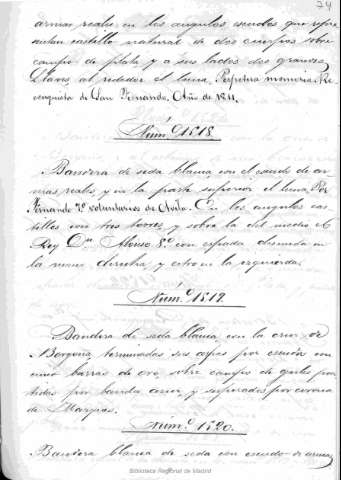 74
armas reales, en los angulos escudos que repre
sentan castillo natural de dos cuerpos sobre
campo de plata y a sus lados dos grandes
Llaves, al rededor el lema, Perpetua memoria. Re
conquista de San Fernando. Año de 1811.
Núm.º 1518.
Bandera de seda blanca con el escudo de ar
mas reales, y en la parte superior el lema, Por
Fernando 7º voluntarios de Avila. En los angulos cas
tillos con tres torres y sobre la del medio el
Rey Dn. Alonso 8.º con espada desnuda en
la mano derecha, y cetro en la izquierda.
Núm.º 1519.
Bandera de seda blanca con la cruz de
Borgoña, terminadas sus aspas por escudos con
cinco barras de oro sobre campo de gules par
tidas por banda azur, y superados por corona
de Marques.
Núm.º 1520.
Bandera blanca de seda con escudo de armas
Biblioteca Regional de Madrid